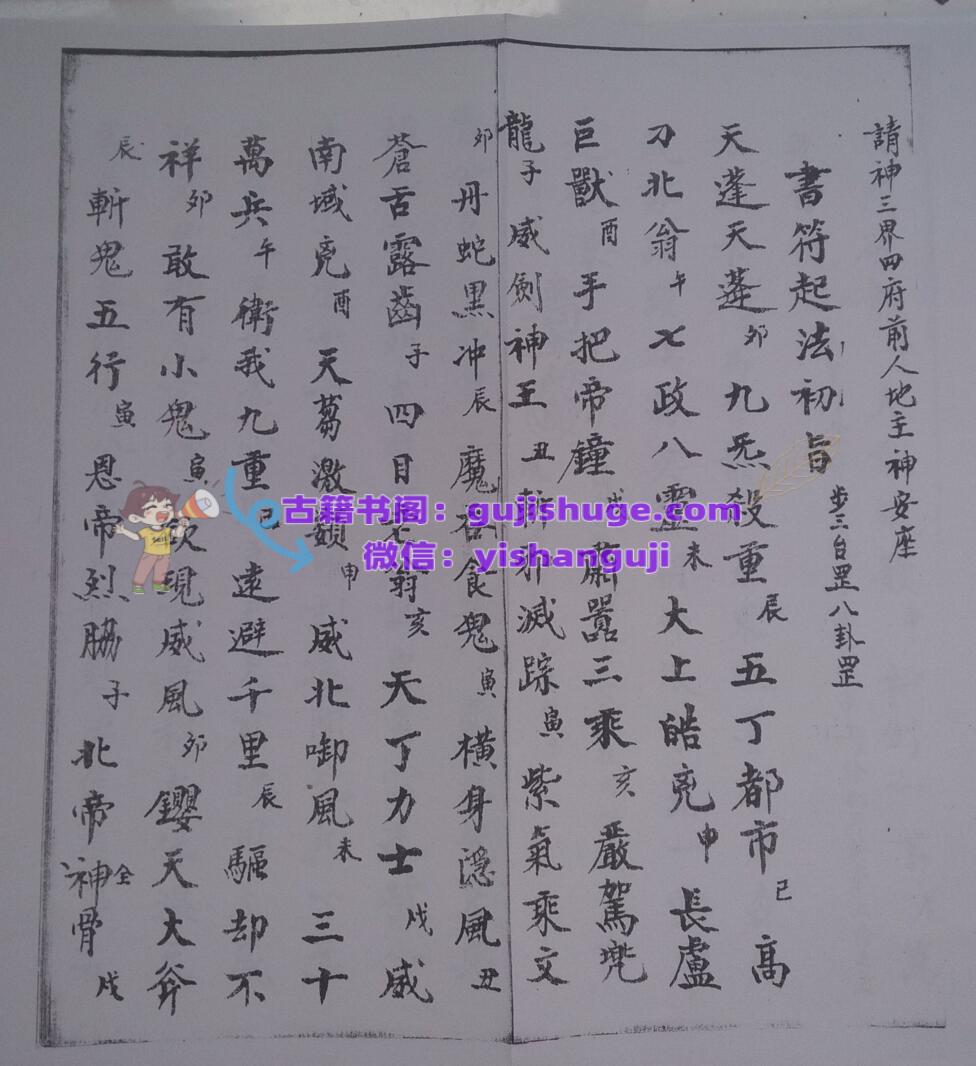 請神三界四府前人地主神安座
書符起法初旨 步三台罡八卦罡
天蓬天蓬 卯 九炁殺重 辰 五丁都市 巳 高
刀北翁 午 七政八靈 未 大上皓兇 申 長盧
巨獸 酉 手把帝鐘 戌 嚣三乘 亥 嚴駕兜
龍 子 威劍神王 丑 斬邪滅踪 寅 紫氣乘文
卯 丹蛇黑冲 辰 魔吞食鬼 寅 橫身隱風 丑
蒼舌露齒 子 四目老翁 亥 天丁力士 戌 威
南域兇 酉 天蒭激額 申 威北啣風 未 三十
萬兵 午 衛我九重 巳 遠避千里 辰 驅却不
祥 卯 敢有小鬼 寅 欲現威風 卯 天大斧
辰 斬鬼五行 寅 恩帝烈脇 子 北帝神全骨 戌
古籍书阁：gujishuge.com
微信：yishanguji